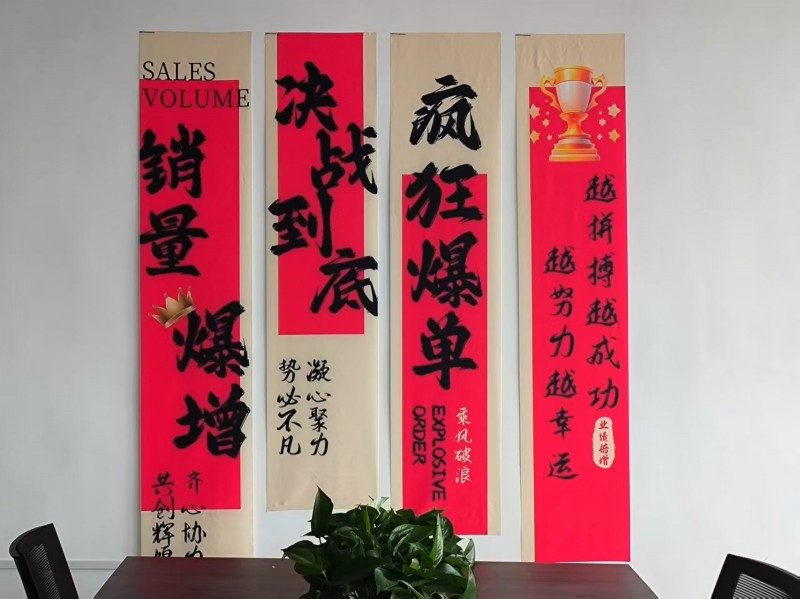 SALES
VOLUME
销量
爆增
齐心协力
共创辉煌
决战到底
凝心聚力
势必不凡
疯狂爆单
乘风破浪
EXPLOSIVE
ORDER
越拼搏越成功
越努力越幸运
业绩倍增